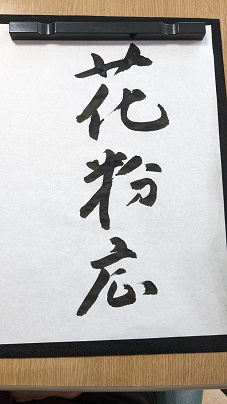 花粉症